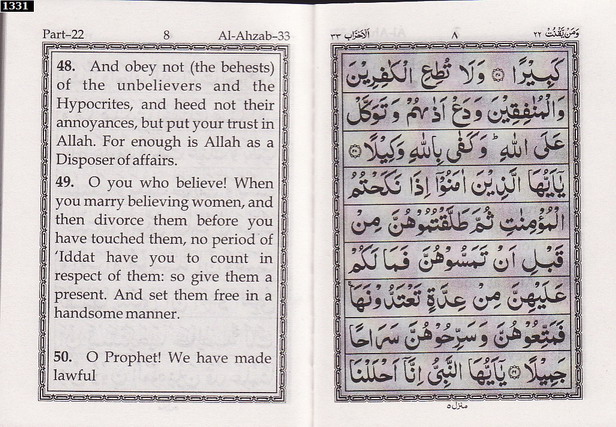 1331
Part–22 8 Al-Ahzab–33
48. And obey not (the behests)
of the unbelievers and the
Hypocrites, and heed not their
annoyances, but put your trust in
Allah. For enough is Allah as a
Disposer of affairs.
49. O you who believe! When
you marry believing women, and
then divorce them before you
have touched them, no period of
‘Iddat have you to count in
respect of them: so give them a
present. And set them free in a
handsome manner.
50. O Prophet! We have made
lawful
وَمَنْ يَّقْنُتْ ٢٢ ٨ اَلْاَحْزَاب ٣٣
كَبِيْرًا ۝٤٧ وَلَا تُطِعِ الْكٰفِرِيْنَ
وَالْمُنٰفِقِيْنَ وَدَعْ اَذٰىهُمْ وَتَوَكَّلْ
عَلَى اللّٰهِ ؕ وَكَفٰى بِاللّٰهِ وَكِيْلًا ۝٤٨
يٰۤاَيُّهَا الَّذِيْنَ اٰمَنُوْۤا اِذَا نَكَحْتُمُ
الْمُؤْمِنٰتِ ثُمَّ طَلَّقْتُمُوْهُنَّ مِنْ
قَبْلِ اَنْ تَمَسُّوْهُنَّ فَمَا لَكُمْ
عَلَيْهِنَّ مِنْ عِدَّةٍ تَعْتَدُّوْنَهَا ۚ
فَمَتِّعُوْهُنَّ وَسَرِّحُوْهُنَّ سَرَاحًا
جَمِيْلًا ۝٤٩ يٰۤاَيُّهَا النَّبِيُّ اِنَّاۤ اَحْلَلْنَا
منزل ٥